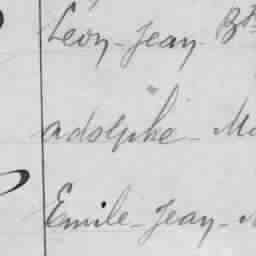 Léon-Jean-Bt
adolphe-M
Emile-Jean-